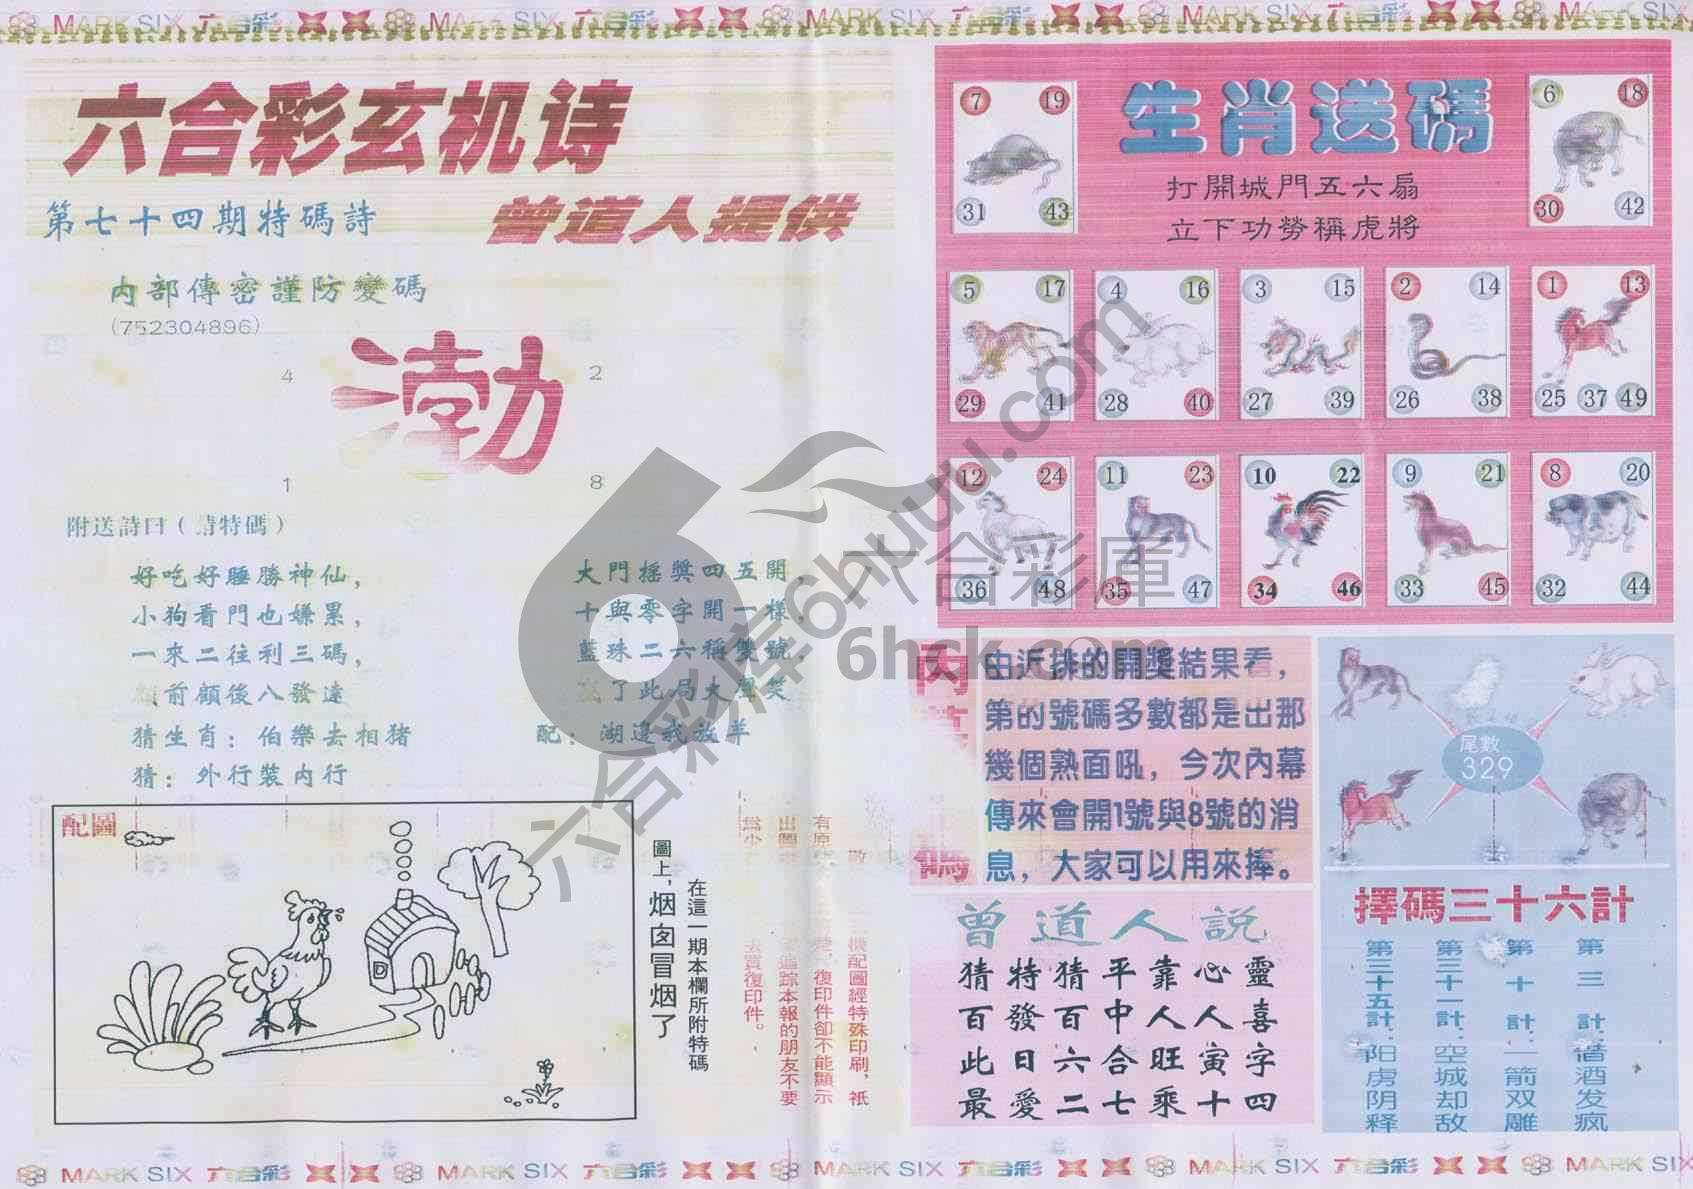 MARK SIX 六合彩 MARK SIX 六合彩 MARK SIX 六合彩 MARK SIX 六合彩
六合彩玄机诗
第七十四期特碼詩
曾道人提供
内部傳密謹防變碼
(752304896)
渤
4 2
1 8
附送詩曰(猜特碼)
好吃好睡勝神仙,
小狗看門也嫌累,
一來二往利三碼,
前顧後八發達
大門摇獎四五開,
十與零字開一樣,
藍珠二六稱雙號,
了此局大聲笑
猜生肖:伯樂去相猪
配:湖邊我放羊
猜:外行裝内行
配圖
在這一期本欄所附特碼
圖上,烟囱冒烟了
生肖送碼
打開城門五六扇
立下功勞稱虎將
7 19 31 43
6 18 30 42
5 17 29 41
4 16 28 40
3 15 27 39
2 14 26 38
1 13 25 37 49
12 24 36 48
11 23 35 47
10 22 34 46
9 21 33 45
8 20 32 44
由近排的開獎結果看,
第的號碼多數都是出那
幾個熟面吼,今次內幕
傳來會開1號與8號的消
息,大家可以用來捧。
尾數
329
曾道人説
猜特猜平靠心靈
百發百中人人喜
此日六合旺寅字
最愛二七乘十四
擇碼三十六計
第三計:借酒发疯
第十計:一箭双雕
第三十一計:空城却敌
第三十五計:阳虏阴释
六合彩庫
6hck.com
六合彩库6huuu.com
MARK SIX 六合彩 MARK SIX 六合彩 MARK SIX 六合彩 MARK SIX 六合彩 MARK SIX